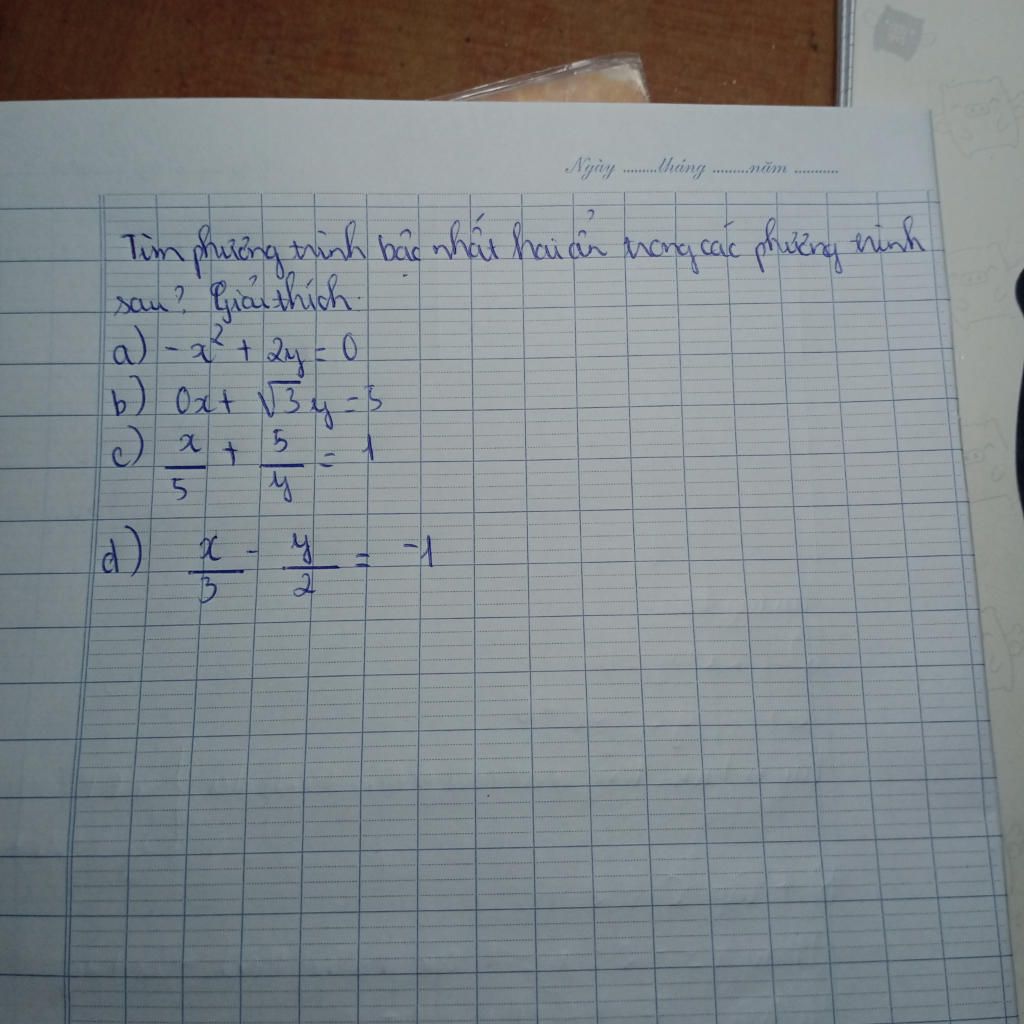 Ngày ........tháng .........năm ...........
Tìm phương trình bậc nhất hai ẩn trong các phương trình
sau? Giải thích.
a) -x² + 2y = 0
b) 0x + √3y = 3
c) x/5 + 5/y = 1
d) x/3 - y/2 = -1